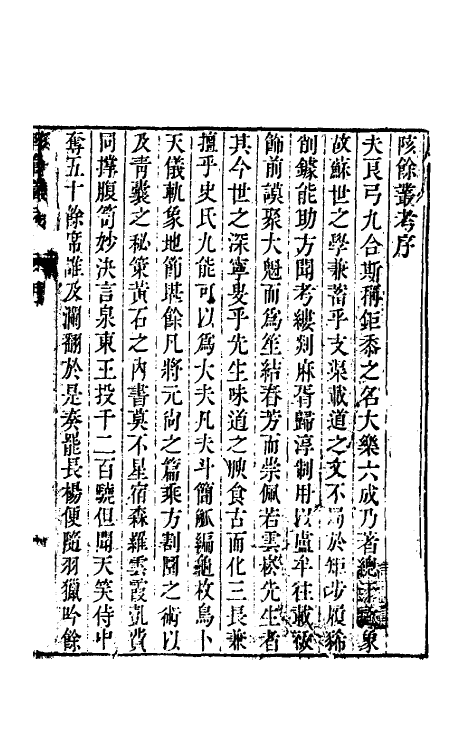 陔餘叢考序
夫良弓九合斯稱鉅黍之名大樂六成乃著總干之象
故蘇世之學兼蓄乎支渠載道之文不局於矩步履豨
削鐻能助方聞考縷刻麻胥歸淳制用以盧牟往載
餙前謨聚大魁而為笙結春芳而崇佩若雲崧先生者
其今世之深寧叟乎先生味道之腴食古而化三長兼
擅乎史氏九能可以為大夫凡夫斗簡觚編龜枚鳥卜
天儀軌象地節堪餘凡將元尚之篇乘方割圜之術以
及靑囊之秘策黃石之內書莫不星宿森羅雲霞凱費
同撐腹笥妙決言泉東王投千二百驍但聞天笑侍中
奪五十餘席誰及瀾翻於是奏罷長楊便隨羽獵吟餘